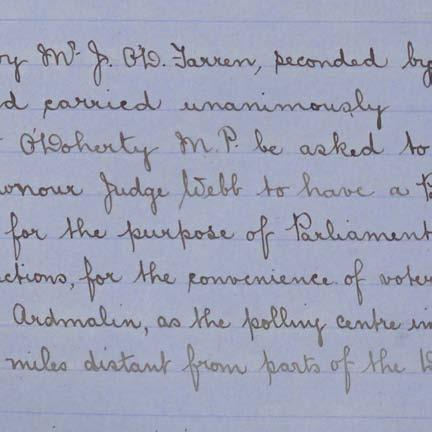 by Mr. J. O'D. Farren, seconded by
d carried unanimously
O'Doherty M.P. be asked to
onour Judge Webb to have a
for the purpose of Parliament
ctions, for the convenience of voter
Ardmalin, as the polling centre in
miles distant from parts of the